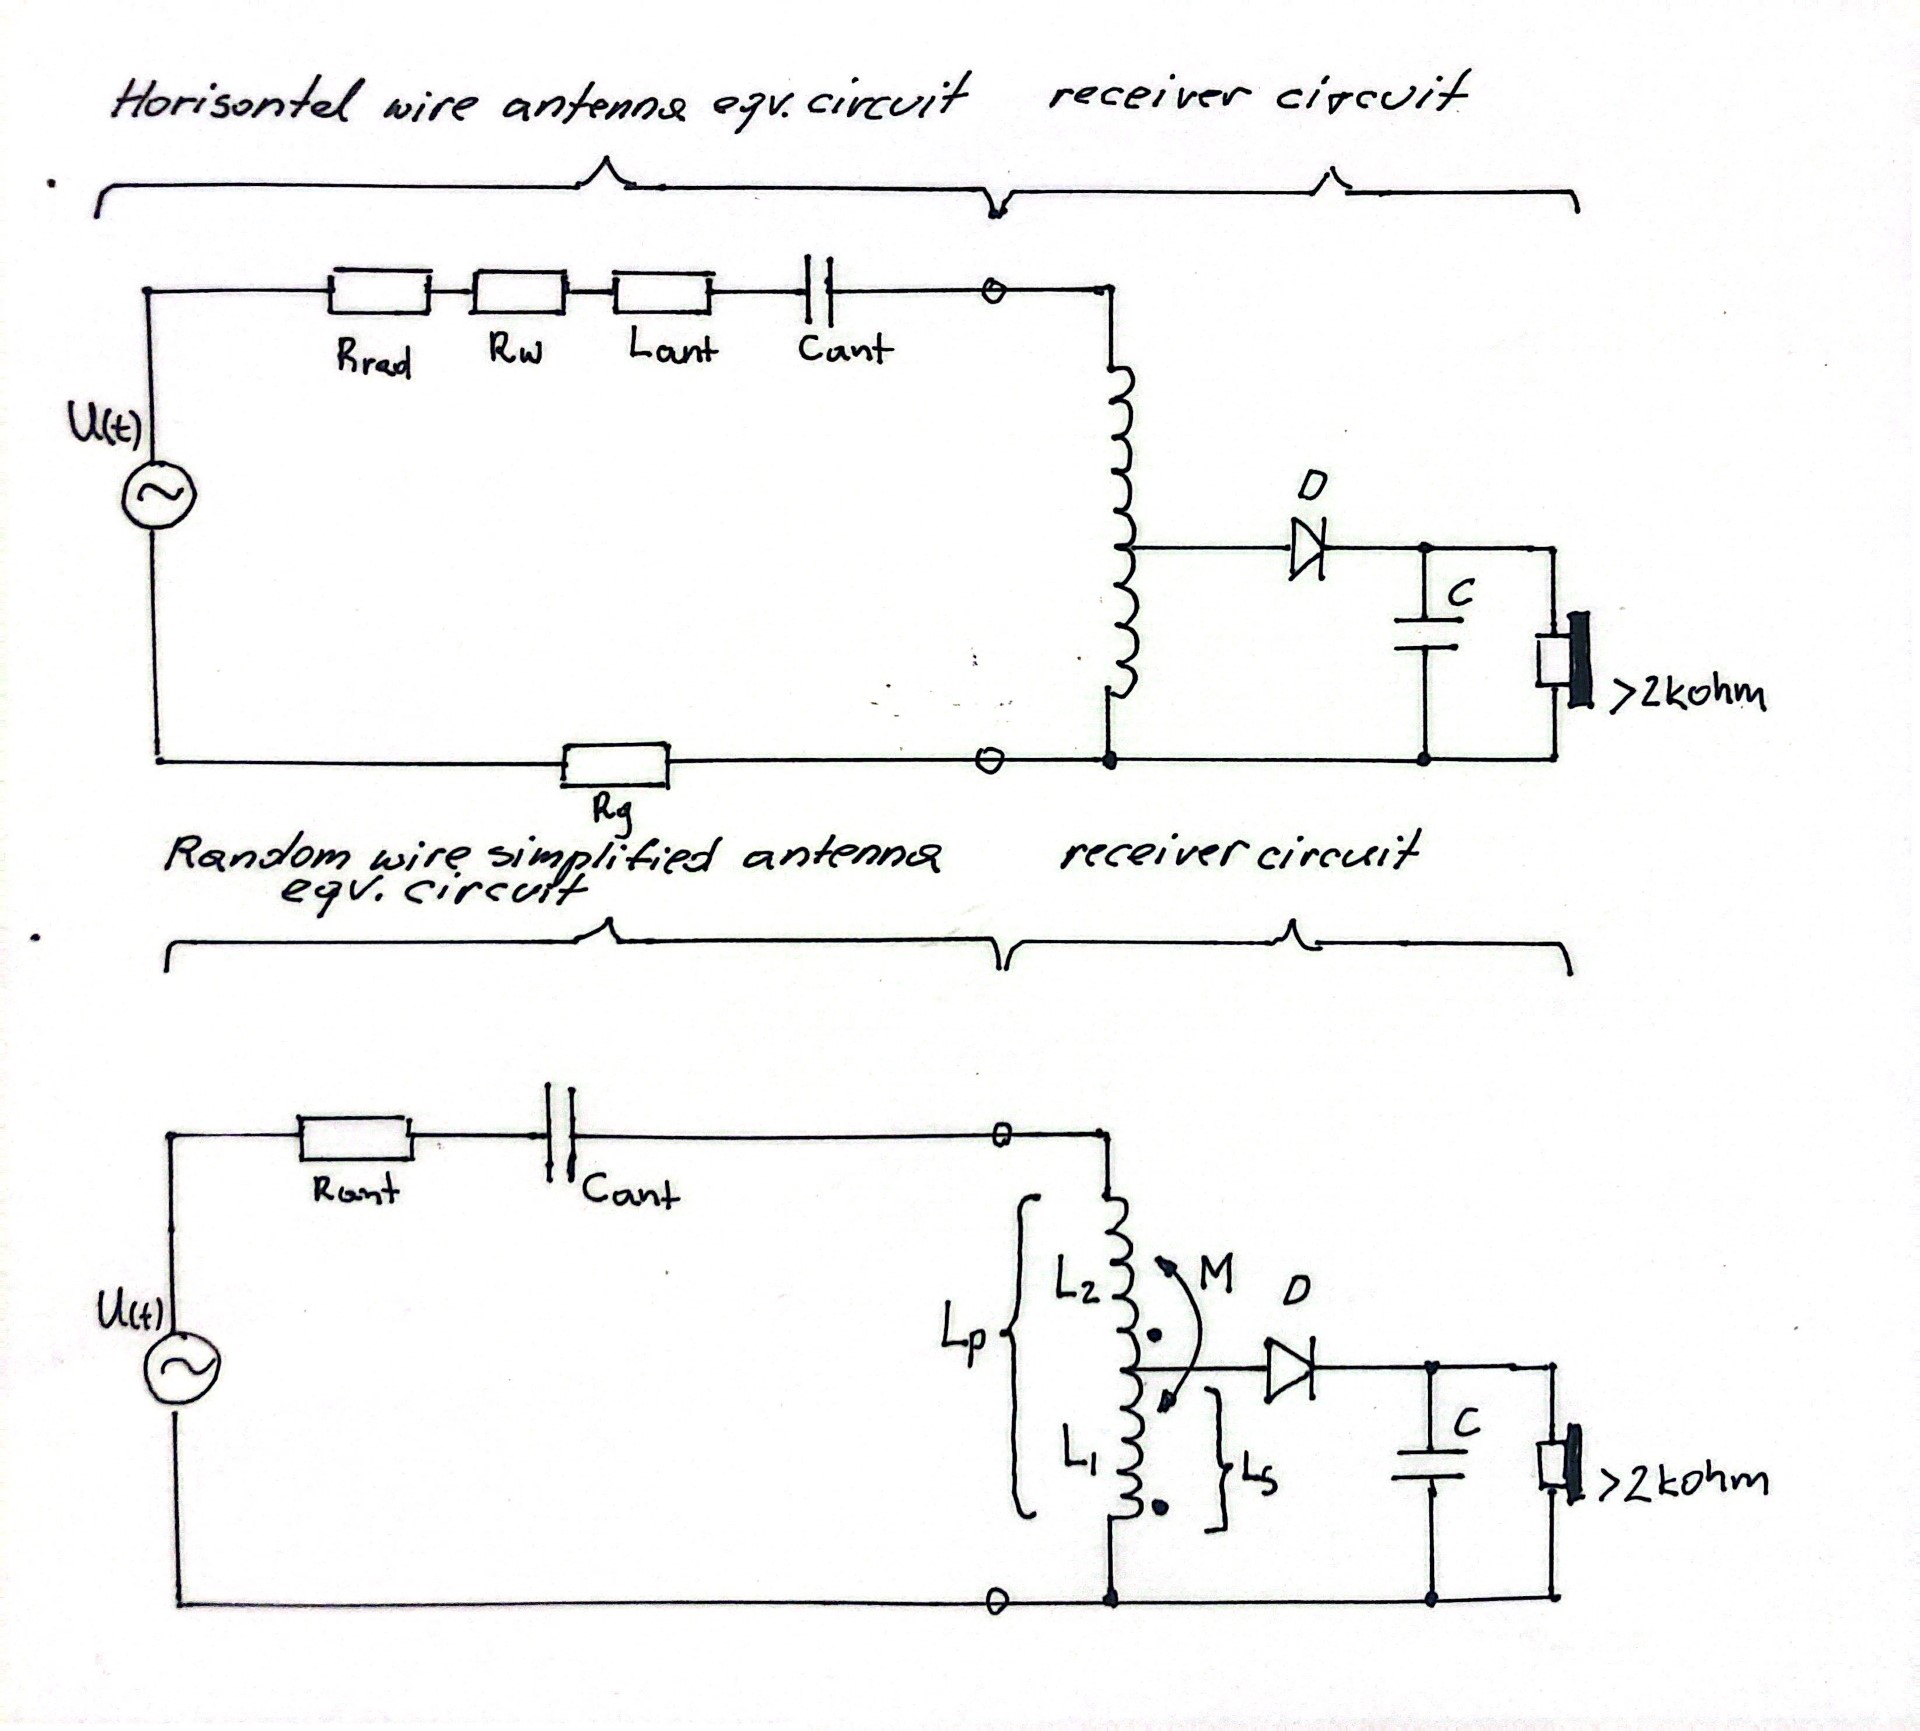 Horisontel wire antenna eqv. circuit receiver circuit
Rrad Rw Lant Cant
U(t)
D
C
>2kohm
Rg
Random wire simplified antenna receiver circuit
eqv. circuit
Rant Cant
L2 M D
U(t)
Lp
L1 Ls C
>2kohm